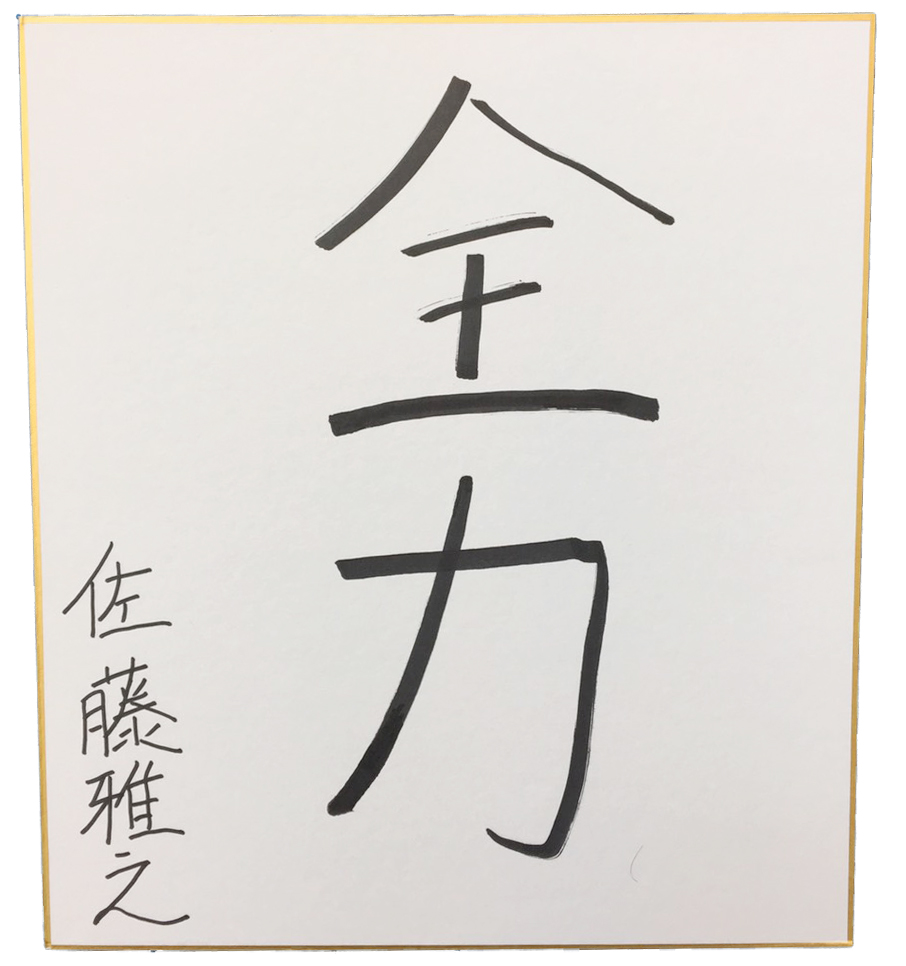 全力
佐藤雅之